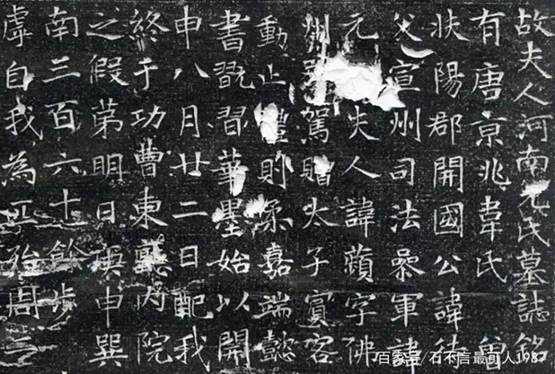 故夫人河南元氏墓誌銘
有唐京兆韋氏曾
扶陽郡開國公諱待
父宣州司法叅軍諱
元夫人諱蘋字佛
州駕贈太子賓客
動止則柔嘉端懿
書翫習華墨始以開
申八月廿二日配我
終于功曹東廳內院
之假第明日庚申巽
南三百六十餘步
虖自我為匹殆周二
百家号/石不言最可人1987